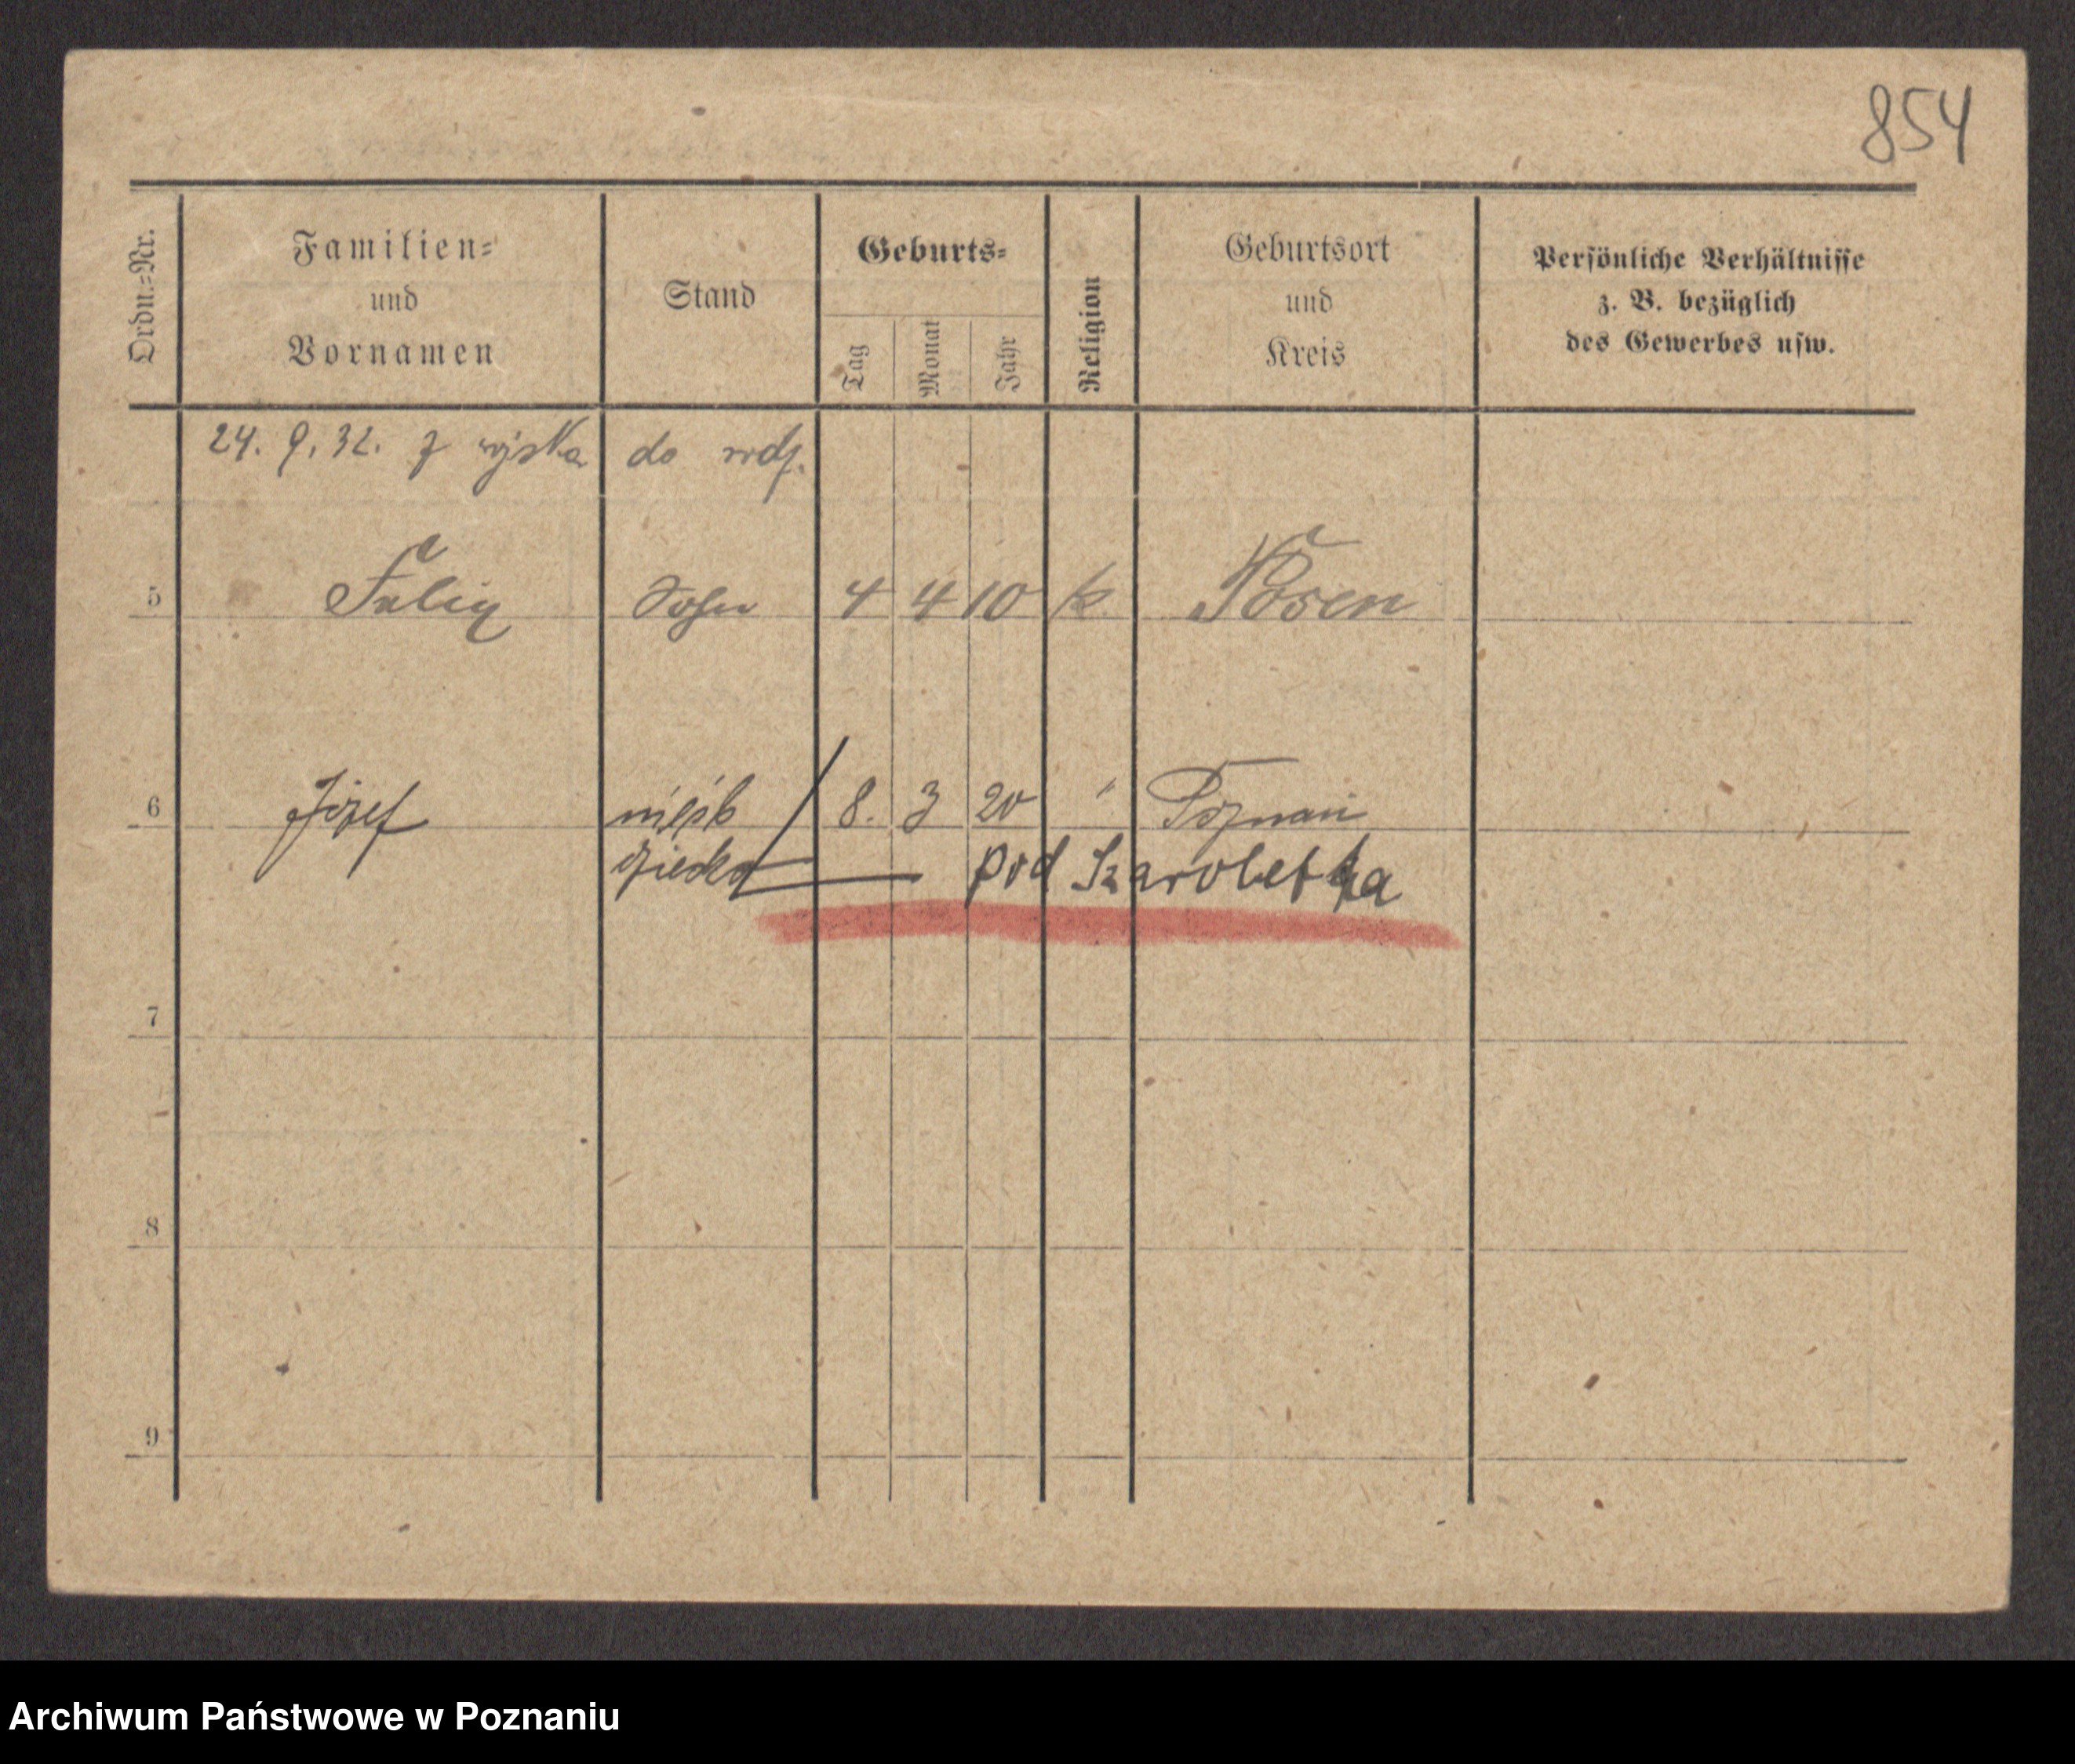 854
Ordn.-Nr.
Familien-
und
Vornamen
Stand
Geburts-
Tag
Monat
Jahr
Religion
Geburtsort
und
Kreis
Persönliche Verhältnisse
z. B. bezüglich
des Gewerbes usw.
24. 9. 32. z wojska do rodz.
5 Felix Sohn 4 4 10 k. Posen
6 Józef nieśl. 8. 3 20 " Poznań
dziecko pod Szaroletka
7
8
9
Archiwum Państwowe w Poznaniu